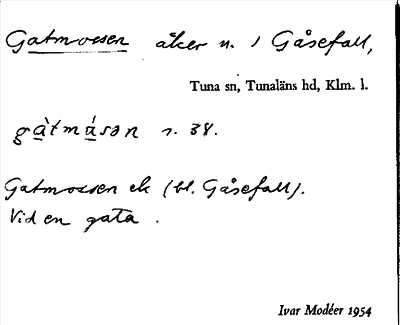 Gatmossen åker n. / Gåsefall,
Tuna sn, Tunaläns hd, Klm. l.
gàtmásən s. 38.
Gatmossen ek (bl. Gåsefall).
Vid en gata .
Ivar Modéer 1954